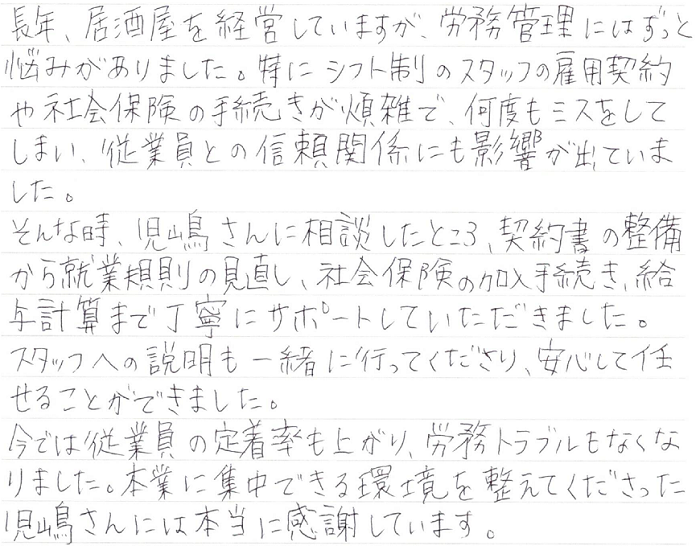 長年、居酒屋を経営していますが、労務管理にはずっと
悩みがありました。特にシフト制のスタッフの雇用契約
や社会保険の手続きが煩雑で、何度もミスをして
しまい、従業員との信頼関係にも影響が出ていま
した。
そんな時、児嶋さんに相談したところ、契約書の整備
から就業規則の見直し、社会保険の加入手続き、給
与計算まで丁寧にサポートしていただきました。
スタッフへの説明も一緒に行ってくださり、安心して任
せることができました。
今では従業員の定着率も上がり、労務トラブルもなくな
りました。本業に集中できる環境を整えてくださった
児嶋さんには本当に感謝しています。